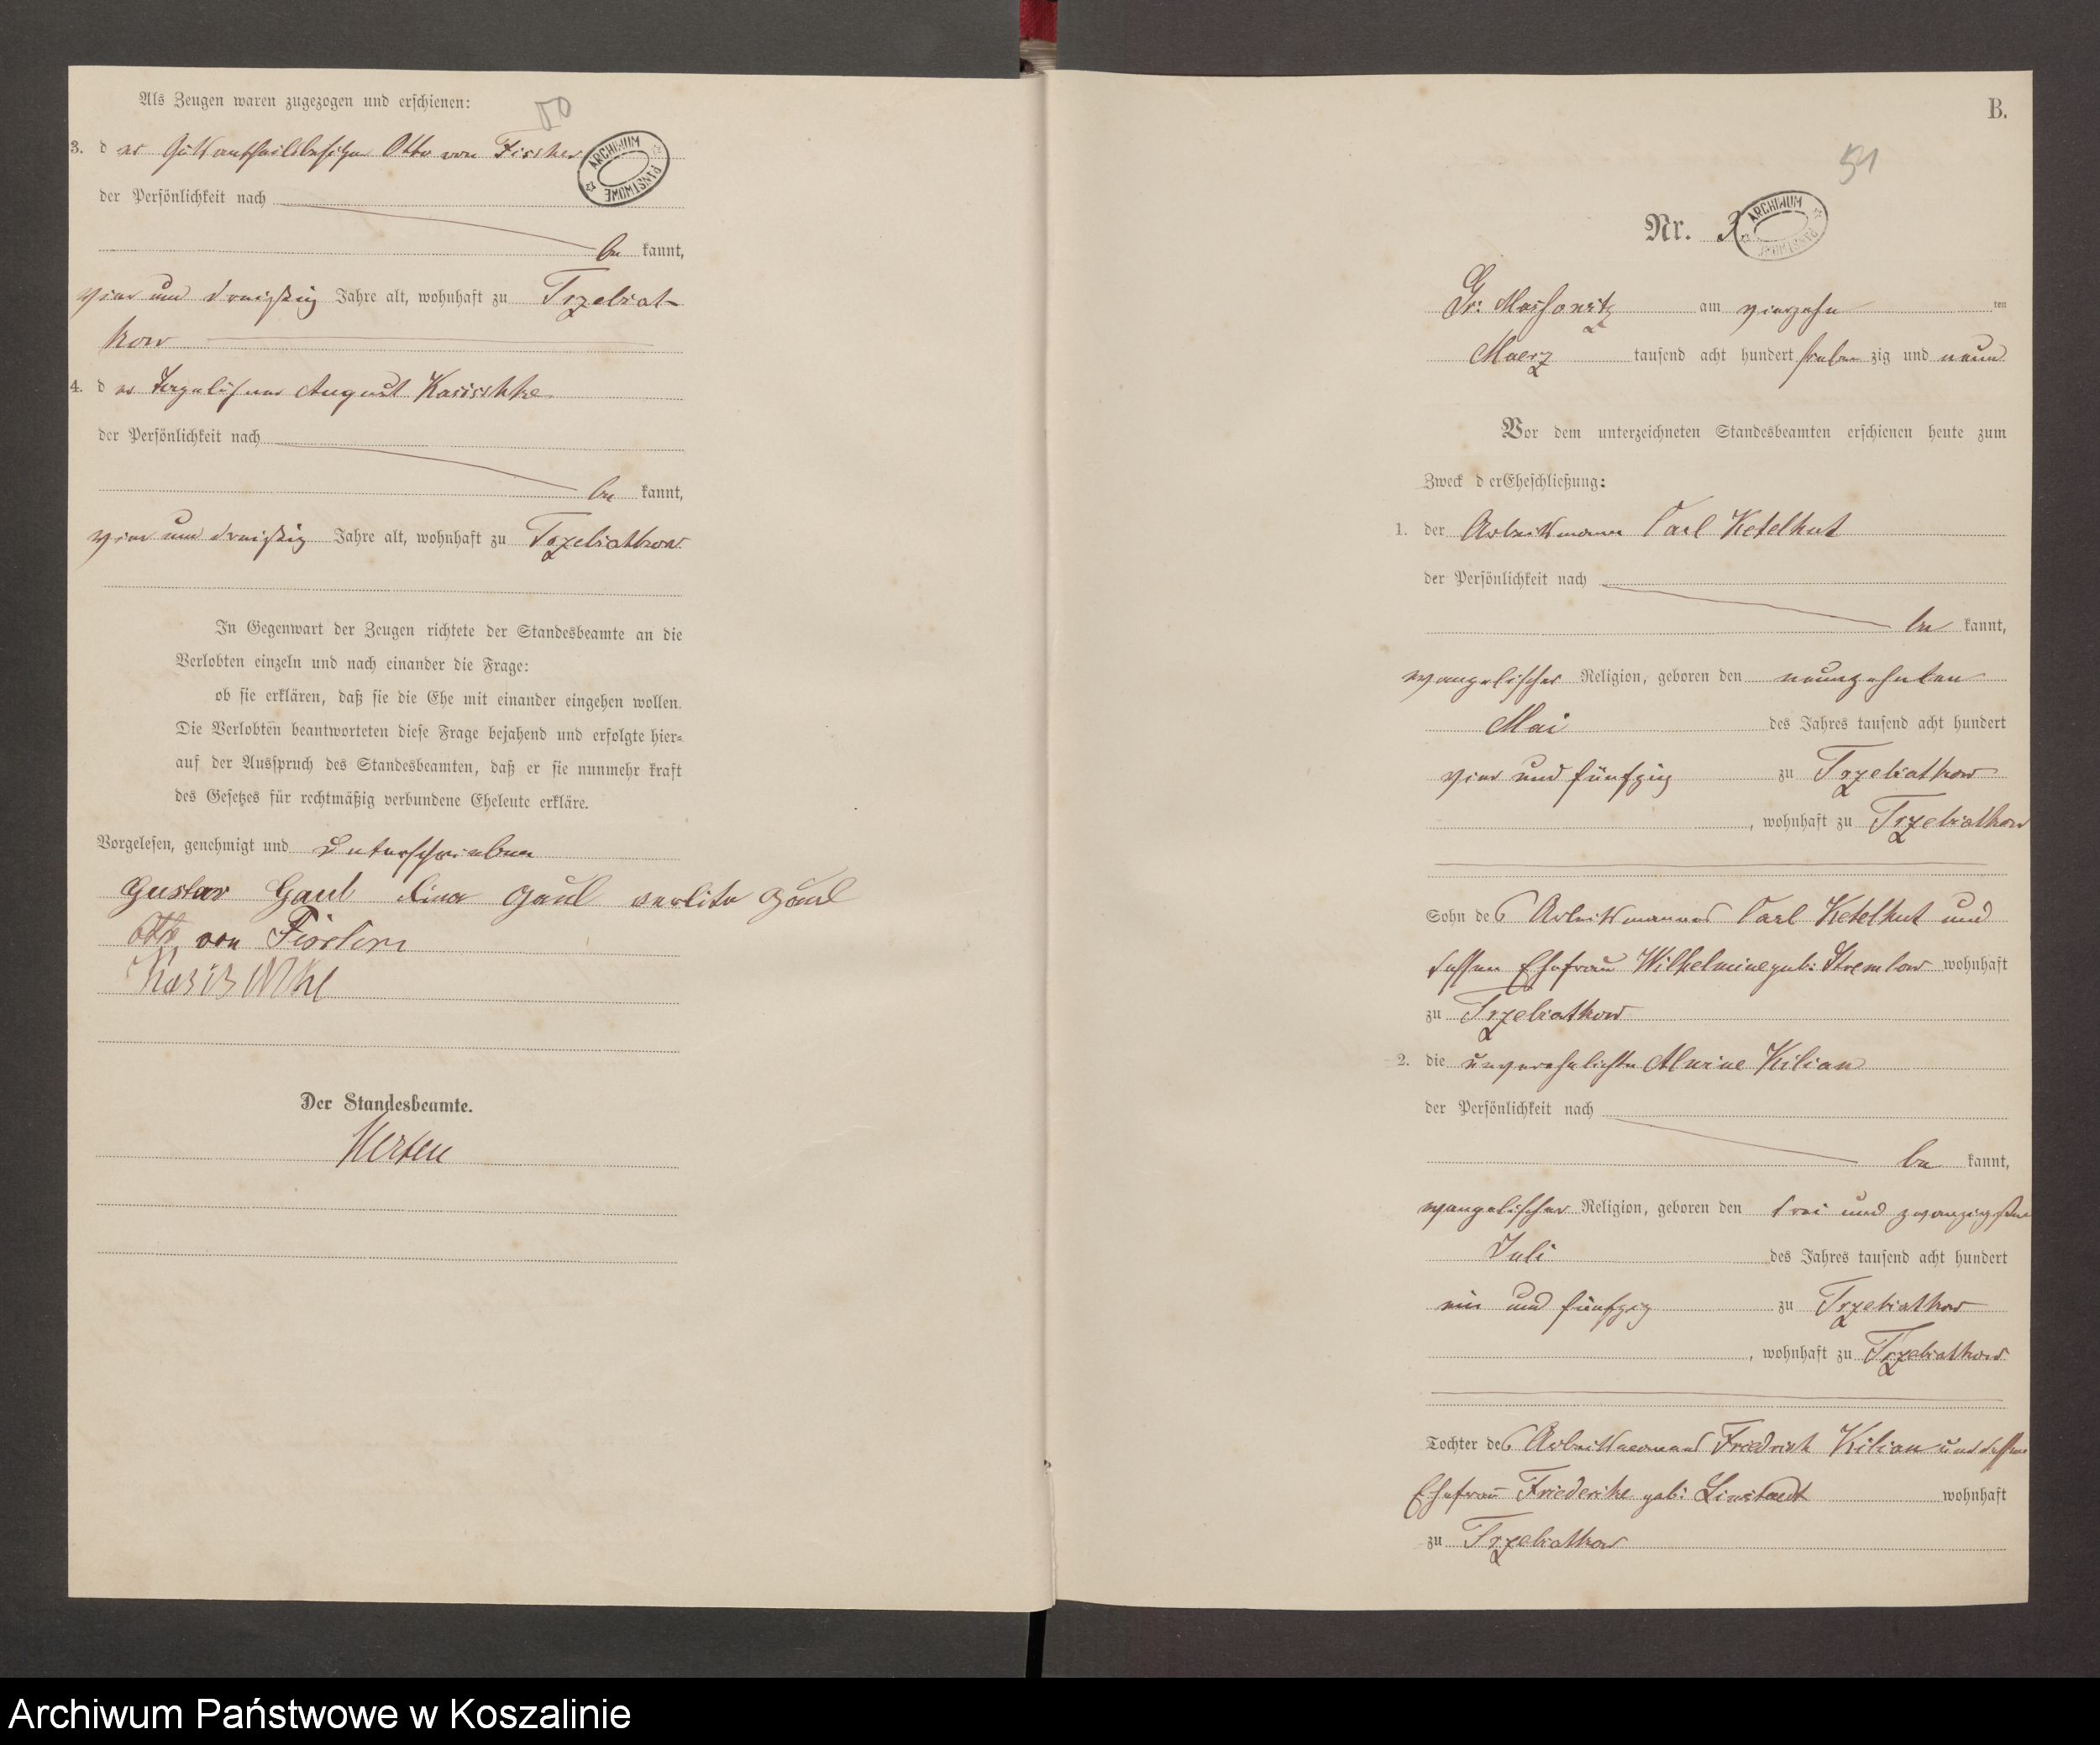 Als Zeugen waren zugezogen und erschienen:
50
3. der Gutsantheilsbesitzer Otto von Fischer
ARCHIWUM PAŃSTWOWE
der Persönlichkeit nach
be kannt,
vier und dreißig Jahre alt, wohnhaft zu Trzebiat-
kow
4. der August Kasischke
der Persönlichkeit nach
be kannt,
vier und dreißig Jahre alt, wohnhaft zu Trzebiatkow
In Gegenwart der Zeugen richtete der Standesbeamte an die
Verlobten einzeln und nach einander die Frage:
ob sie erklären, daß sie die Ehe mit einander eingehen wollen.
Die Verlobten beantworteten diese Frage bejahend und erfolgte hier=
auf der Ausspruch des Standesbeamten, daß er sie nunmehr kraft
des Gesetzes für rechtmäßig verbundene Eheleute erkläre.
Vorgelesen, genehmigt und unterschrieben
Gustav Gaul Lina Gaul Gaul
Otto von
Der Standesbeamte.
Merten
B.
51
Nr. 3.
ARCHIWUM PAŃSTWOWE
Gr: Massowitz am vierzehn ten
Maerz tausend acht hundert sieben zig und neun
Vor dem unterzeichneten Standesbeamten erschienen heute zum
Zweck der Eheschließung:
1. der Arbeitsmann Carl Ketelhut
der Persönlichkeit nach
be kannt,
evangelischer Religion, geboren den neunzehnten
Mai des Jahres tausend acht hundert
vier und fünfzig zu Trzebiatkow
, wohnhaft zu Trzebiatkow
Sohn des Arbeitsmannes Carl Ketelhut und
dessen Ehefrau Wilhelmine geb: Stremlow wohnhaft
zu Trzebiatkow
2. die unverehelichte Alwine Kilian
der Persönlichkeit nach
be kannt,
evangelischer Religion, geboren den drei und zwanzigsten
Juli des Jahres tausend acht hundert
ein und fünfzig zu Trzebiatkow
, wohnhaft zu Trzebiatkow
Tochter des Arbeitsmanns Friedrich Kilian und dessen
Ehefrau Friederike geb: Linstaedt wohnhaft
zu Trzebiatkow
Archiwum Państwowe w Koszalinie